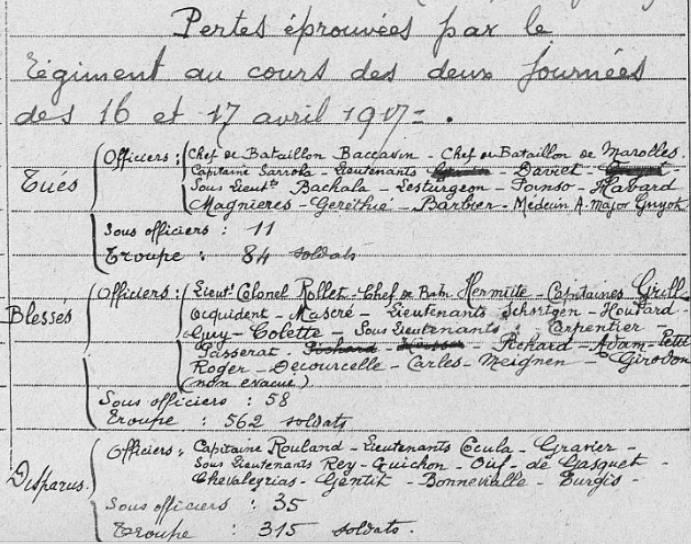 Pertes éprouvées par le
Régiment au cours des deux journées
des 16 et 17 avril 1917 = .
Tués
Officiers : Chef de Bataillon Baccavin - Chef de Bataillon de Marolles.
Capitaine Sarrola - Lieutenants - Daviet -
Sous Lieutts Bachala - Lesturgeon - Poinso - Havard
Magnieres - Gerethié - Barbier - Médecin A-major Guyot.
Sous officiers : 11
Troupe : 84 soldats
Blessés
Officiers : Lieutt Colonel Rollet - Chef de Batn Hermitte - Capitaines Grull
Ocquident - Mascré - Lieutenants Schortgen - Houtard -
Guy - Colette - Sous Lieutenants : Carpentier -
Passerat - Richard - Adam - Petit
Roger - Decourcelle - Carles - Meignen - Girodon
(non évacué)
Sous officiers : 58
Troupe : 562 soldats
Disparus.
Officiers : Capitaine Rouland - Lieutenants Cocula - Gravier -
Sous Lieutenants Rey - Guichon - Ouf - de Gasquet -
Chevaleyrias - Gentit - Bonnevialle - Turgis -
Sous officiers : 35
Troupe : 315 soldats.